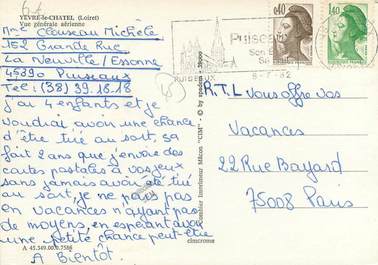 YÈVRE-le-CHATEL (Loiret)
Vue générale aérienne
Mme Clouseau Michèle
162 Grande Rue
La Neuville/Essonne
45390 Puiseaux
Tel: (38) 39.18.18
j'ai 4 enfants et je
voudrai avoir une chance
d'être tiré au sort, sa
fait 2 ans que j'envoie des
cartes postales à vos jeux
sans jamais avoir été tiré
au sort, je ne pars pas
en vacances n'ayant pas
de moyens, en espérant avoir
une petite chance peut-être
A Bientôt.
A 45.349.00.0.7586
cimcrome
Combier Imprimeur Mâcon "CIM"
PUISEAUX
PUISEAUX
Son
1,40
1,40
R.T.L vous offre vos
Vacances
22 Rue Bayard
75008 Paris